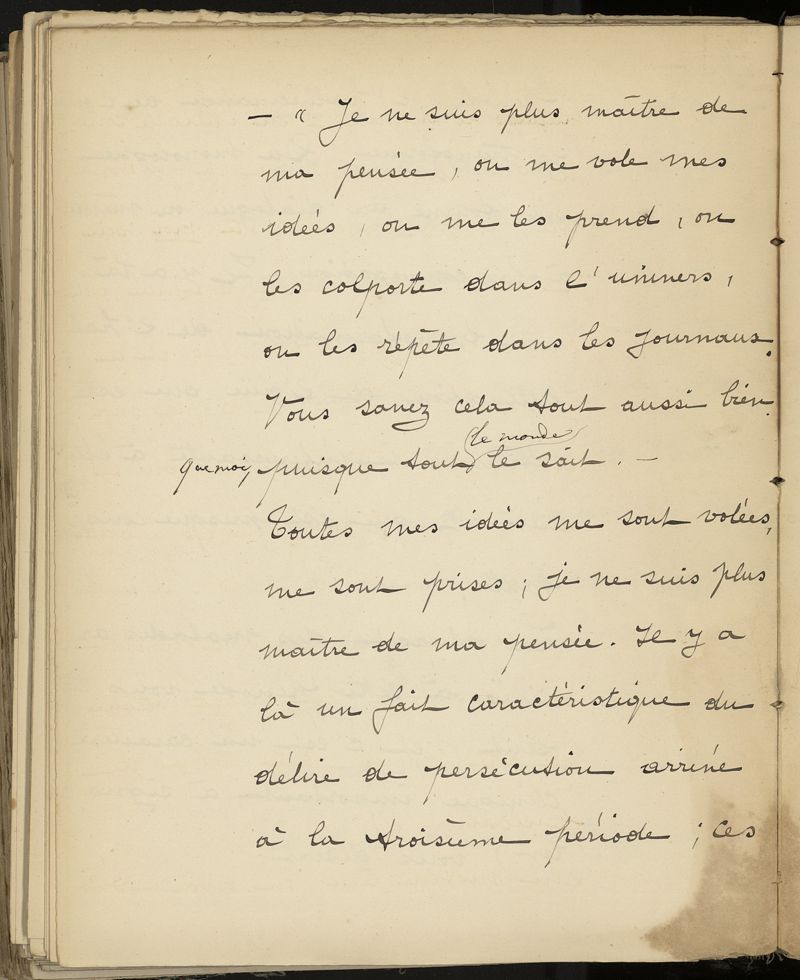 — " Je ne suis plus maître de
ma pensée, on me vole mes
idées, on me les prend, on
les colporte dans l'univers,
on les répète dans les journaux.
Vous savez cela tout aussi bien
le monde
que moi, puisque tout le sait. —
Toutes mes idées me sont volées,
me sont prises ; je ne suis plus
maître de ma pensée. Il y a
là un fait caractéristique du
délire de persécution arrivé
à la troisième période ; ces